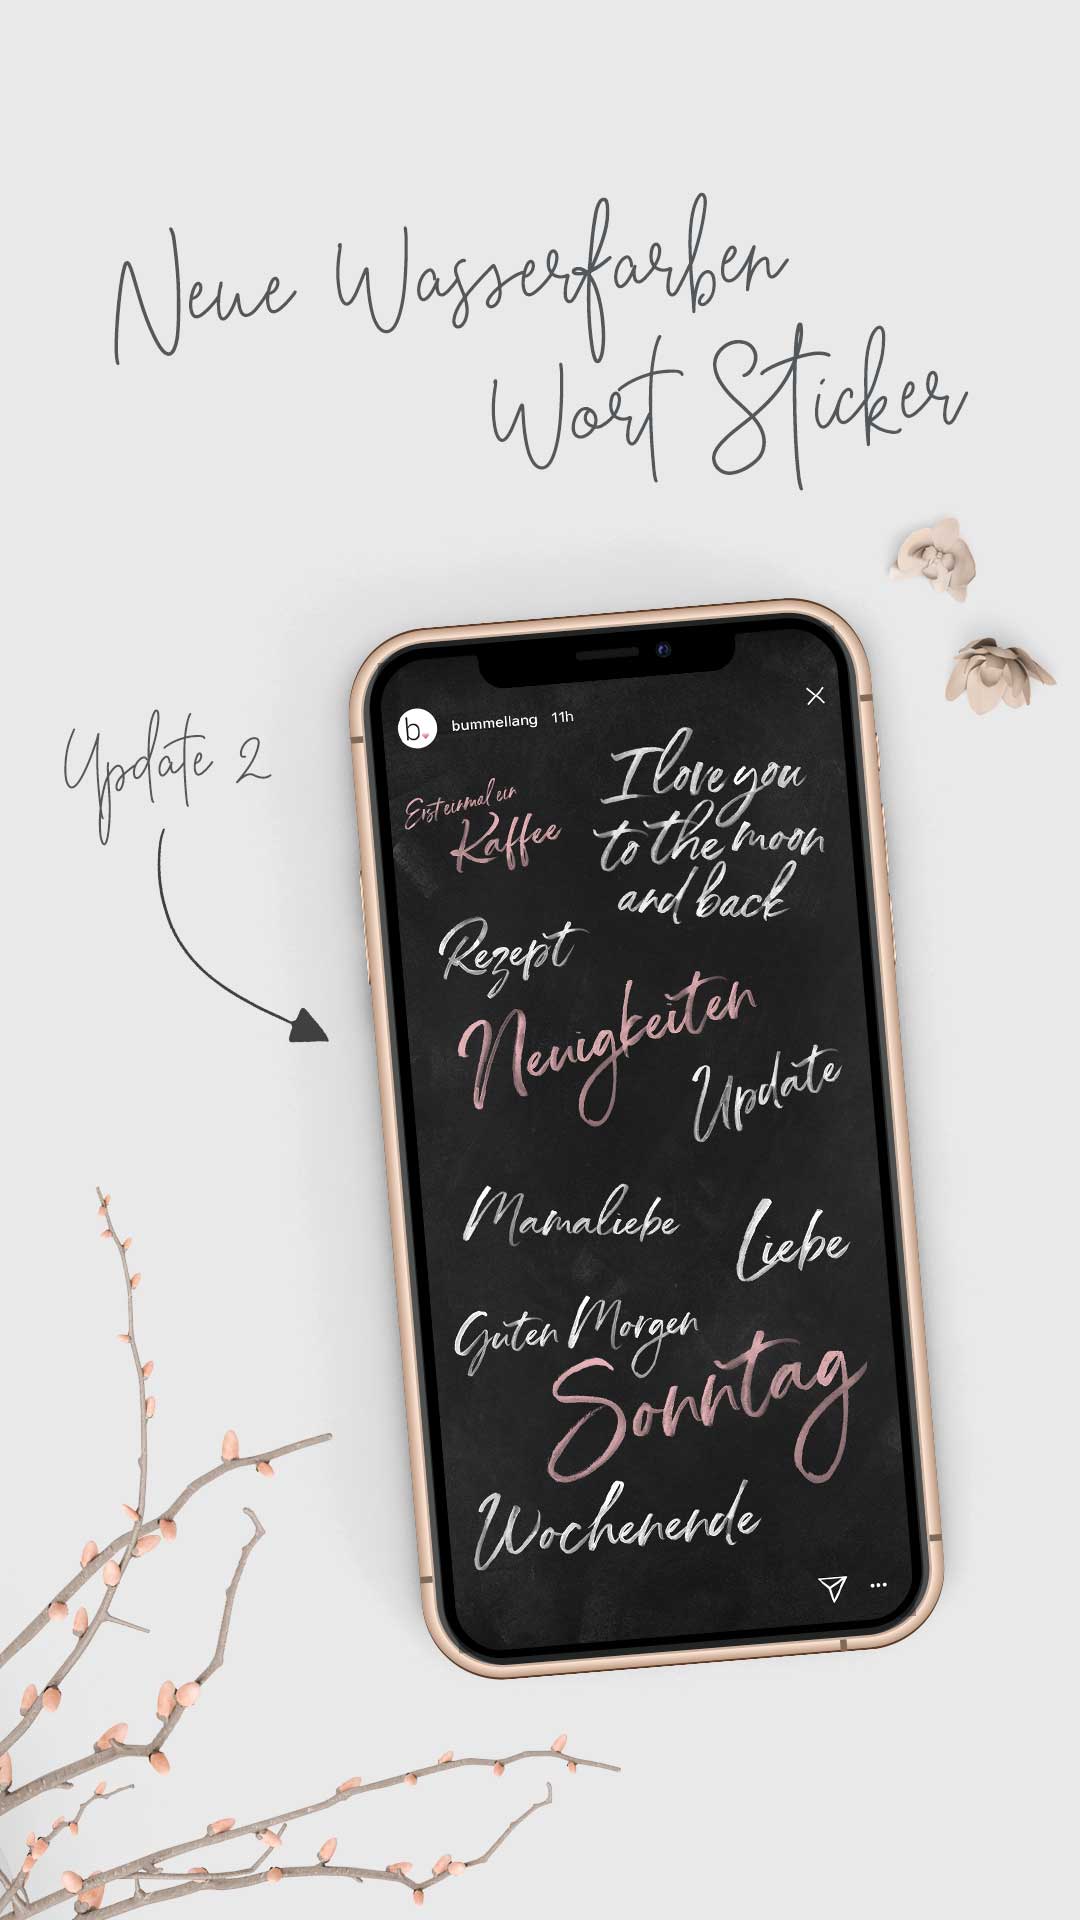 Neue Wasserfarben
Wort Sticker
Update 2
b.
bummellang 11h
Erst einmal ein
Kaffee
I love you
to the moon
and back
Rezept
Neuigkeiten
Update
Mamaliebe
Liebe
Guten Morgen
Sonntag
Wochenende